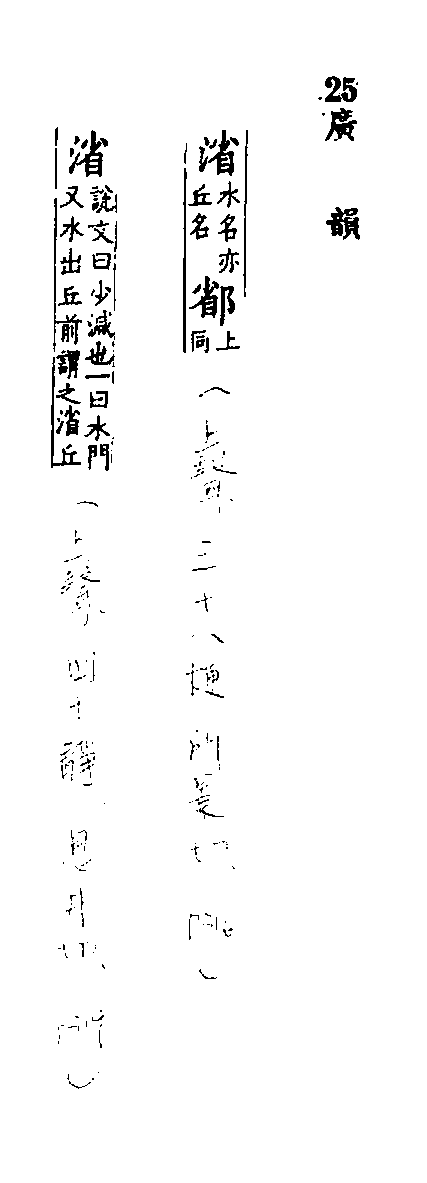 25廣韻
渻水名亦丘名 上同(上聲 三十八梗 所景切)
渻說文曰少減也一曰水門又水出丘前謂之渻丘(上聲 四十靜、息井切、)